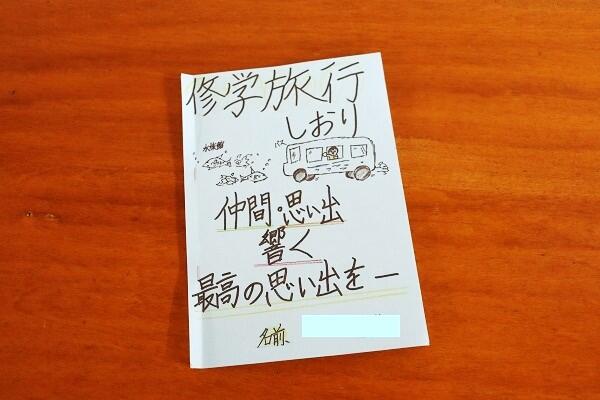 修学旅行
しおり
水族館
仲間・思い出
響く
最高の思い出を―
名前